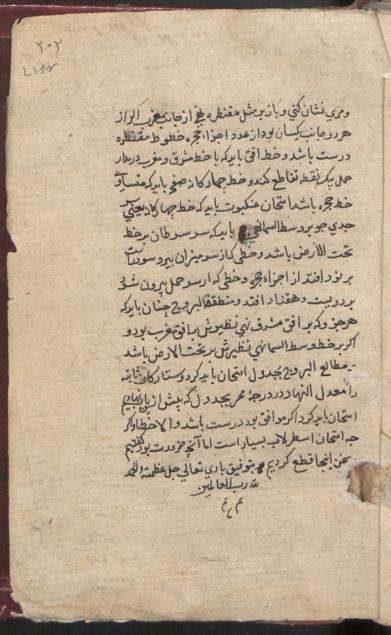 ۲۰۲
ومری نشان کنی و باز بر مثل مقنطره یعنی از جانب مغرب اگر از
هر دو جانب یکسان بود از عدد اجزاء حجره خطوط مقنطره
درست باشد و خط افق باید که با خط مشرق و مغرب در مدار
حمل بیک نقطه تقاطع کند و خط چهارکانه صفحه باید که متساوی
خط حجره باشد امتحان عنکبوت باید که خط چهارکانه یعنی سر
جدی جو بر وسط السما نهی باید که سر سرطان بر خط
تحت الأرض باشد و خطی که از سر میزان بیرون شود بر
بر نود افتد از اجزاء حجره و خطی که از سر حمل بیرون شود
بر دویست و هفتاد افتد و منطقة البروج چنان باید که
هر جزو که بر افق مشرق نهی نظیرش بر افق مغرب بود و
اگر بر خط وسط السما نهی نظیرش بر تحت الارض باشد
مطالع البروج بجدول امتحان باید کرد و ستارکان ثابته
را معدل النهار و درجهٔ ممر بجدول که پیش ازین نهادیم
امتحان باید کرد اکر موافق بود درست باشد والا خطا و اگر
چه امتحان اسطرلاب بسیار است اما آنچه ضرورت بود گفتیم
سخن اینجا قطع کردیم بتوفیق باری تعالی جل عظمته والحمد
لله رب العالمین
م م م